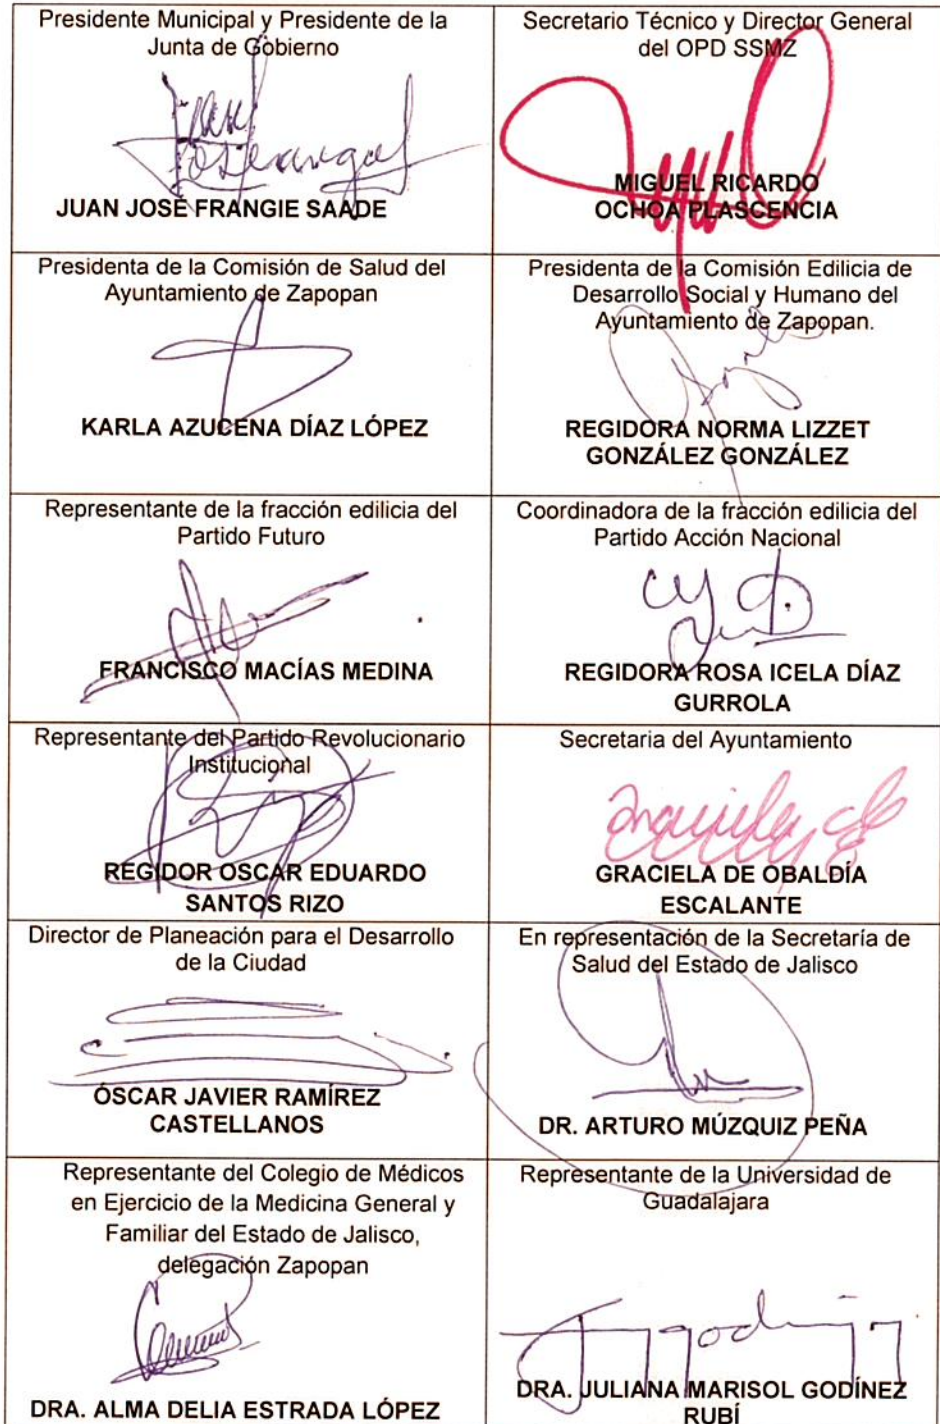 Presidente Municipal y Presidente de la
Junta de Gobierno
JUAN JOSÉ FRANGIE SAADE
Secretario Técnico y Director General
del OPD SSMZ
MIGUEL RICARDO
OCHOA PLASCENCIA
Presidenta de la Comisión de Salud del
Ayuntamiento de Zapopan
KARLA AZUCENA DÍAZ LÓPEZ
Presidenta de la Comisión Edilicia de
Desarrollo Social y Humano del
Ayuntamiento de Zapopan.
REGIDORA NORMA LIZZET
GONZÁLEZ GONZÁLEZ
Representante de la fracción edilicia del
Partido Futuro
FRANCISCO MACÍAS MEDINA
Coordinadora de la fracción edilicia del
Partido Acción Nacional
REGIDORA ROSA ICELA DÍAZ
GURROLA
Representante del Partido Revolucionario
Institucional
REGIDOR OSCAR EDUARDO
SANTOS RIZO
Secretaria del Ayuntamiento
GRACIELA DE OBALDÍA
ESCALANTE
Director de Planeación para el Desarrollo
de la Ciudad
ÓSCAR JAVIER RAMÍREZ
CASTELLANOS
En representación de la Secretaría de
Salud del Estado de Jalisco
DR. ARTURO MÚZQUIZ PEÑA
Representante del Colegio de Médicos
en Ejercicio de la Medicina General y
Familiar del Estado de Jalisco,
delegación Zapopan
DRA. ALMA DELIA ESTRADA LÓPEZ
Representante de la Universidad de
Guadalajara
DRA. JULIANA MARISOL GODÍNEZ
RUBÍ